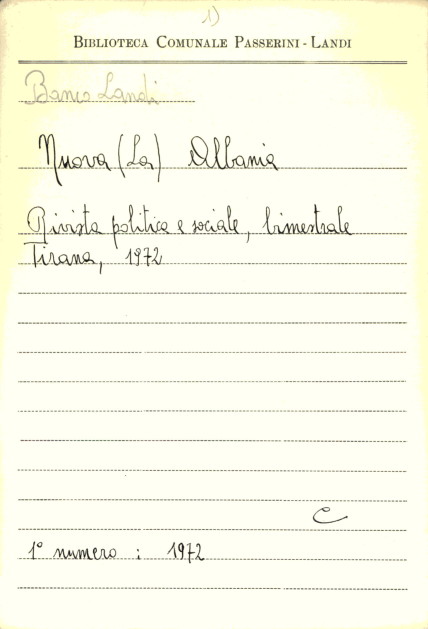 1)
BIBLIOTECA COMUNALE PASSERINI - LANDI
Banco Landi
Nuova (La) Albania
Rivista politica e sociale, bimestrale
Tirana, 1972
C
1° numero : 1972